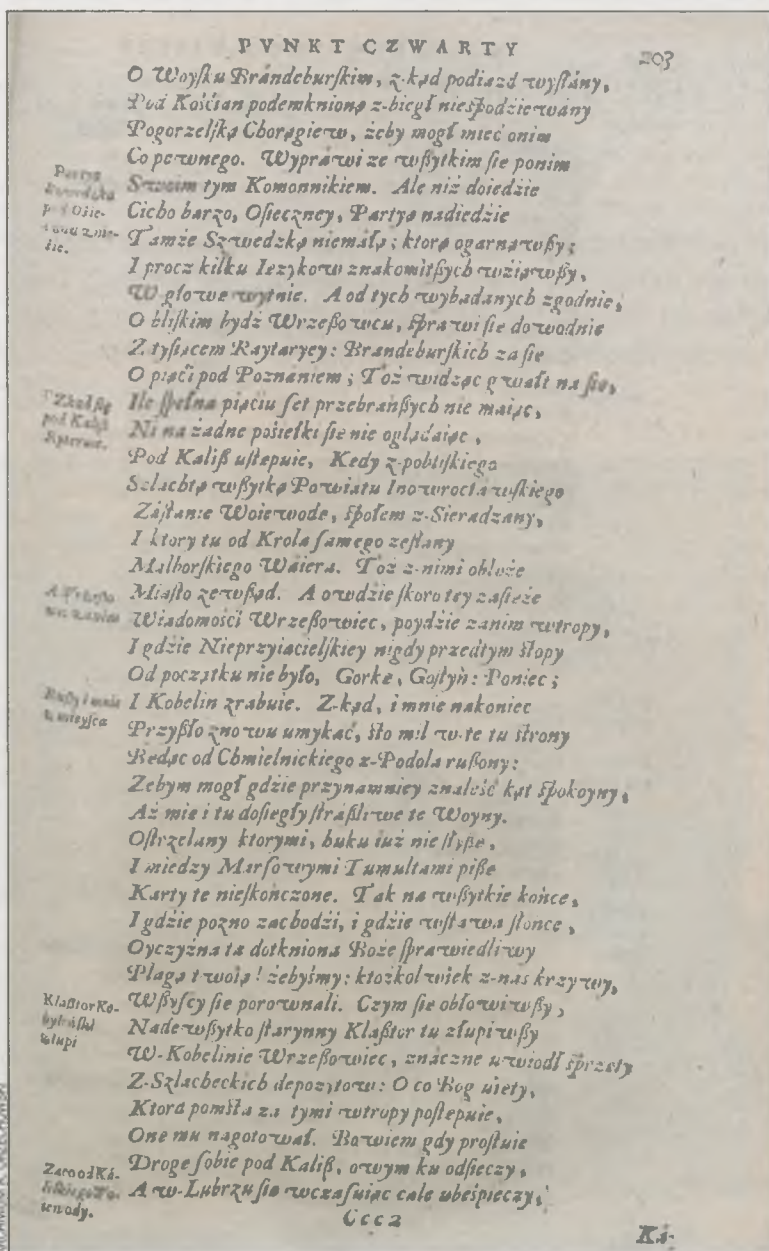 PVNKT CZWARTY
203
O Woyſku Brándeburſkim, z-kąd podiazd wyſłány,
Pod Kośćian podemknioną z-biegł nieſpodziewány
Pogorzelſką Chorągiew, żeby mogł mieć onim
Co pewnego. Wypráwi ze wßytkim ſie ponim
Swoim tym Komonnikiem. Ale niż doiedzie
Cicho bárzo, Oſieczney, Partyą nadiedzie
Tamże Szwedzką niemáłą; ktorą ogarnąwßy;
I procz kilku Ięzykow znakomitßych wźiąwßy,
W głowę wytnie. A od tych wybadanych zgodnie,
O bliſkim bydź Wrzeßowcu, ſpráwi ſie dowodnie
Z tyſiącem Raytaryey: Brandeburſkich zaſię
O piąći pod Poznaniem; Toż widząc gwałt na ſię,
Ile ſpełna piąciu ſet przebrańßych nie maiąc,
Ni na żadne pośiełki ſie nie oglądaiąc,
Pod Kaliß uſtępuie, Kędy z-pobliſkiego
Szlachtą wßytką Powiatu Inowrocłáwſkiego
Záſtanie Woiewodę, ſpołem z-Sieradzány,
I ktory tu od Krola ſamego zeſłany
Malborſkiego Wáiera. Toż z-nimi obloże
Miáſto zewßąd. A owdzie ſkoro tey zaſięże
Wiadomości Wrzeßowiec, poydźie zanim wtropy,
I gdzie Nieprzyiacielſkiey nigdy przedtym ſtopy
Od początku nie było, Gorkę, Goſtyń: Poniec;
I Kobelin zrabuie. Z-kąd, i mnie nakoniec
Przyßło znowu umykać, ſto mil w-te tu ſtrony
Będąc od Chmielnickiego z-Podola rußony:
Zebym mogł gdzie przynamniey znaleść kąt ſpokoyny,
Aż mie i tu doſięgły ſtráßliwe te Woyny.
Oſtrzelany ktorymi, huku iuż nie ſłyßę,
I miedzy Marſowymi Tumultami pißę
Karty te nieſkończone. Ták na wßytkie końce,
I gdzie pozno zachodźi, i gdzie wſtawa ſłonce,
Oyczyzna ta dotkniona Boże ſprawiedliwy
Plagą twoią! żebyśmy: ktożkolwiek z-nas krzywy,
Wßyſcy ſie porownali. Czym ſie obłowiwßy,
Nadewßytko ſtarynny Klaßtor tu złupiwßy
W-Kobelinie Wrzeßowiec, znáczne uwiodł ſprzęty
Z-Szlacheckich depozytow: O co Bog uięty,
Ktora pomſta za tymi wtropy poſtępuie,
Onę mu nagotował. Bowiem gdy proſtuie
Drogę ſobie pod Kaliß, owym ku odſieczy,
A w-Lubrzu ſię wczaſuiąc cale ubeſpieczy,
Klaßtor Ko-
byliński
złupi
Zaco od Ka-
liskiego Wo-
iewody.
Cccc2
Ká-